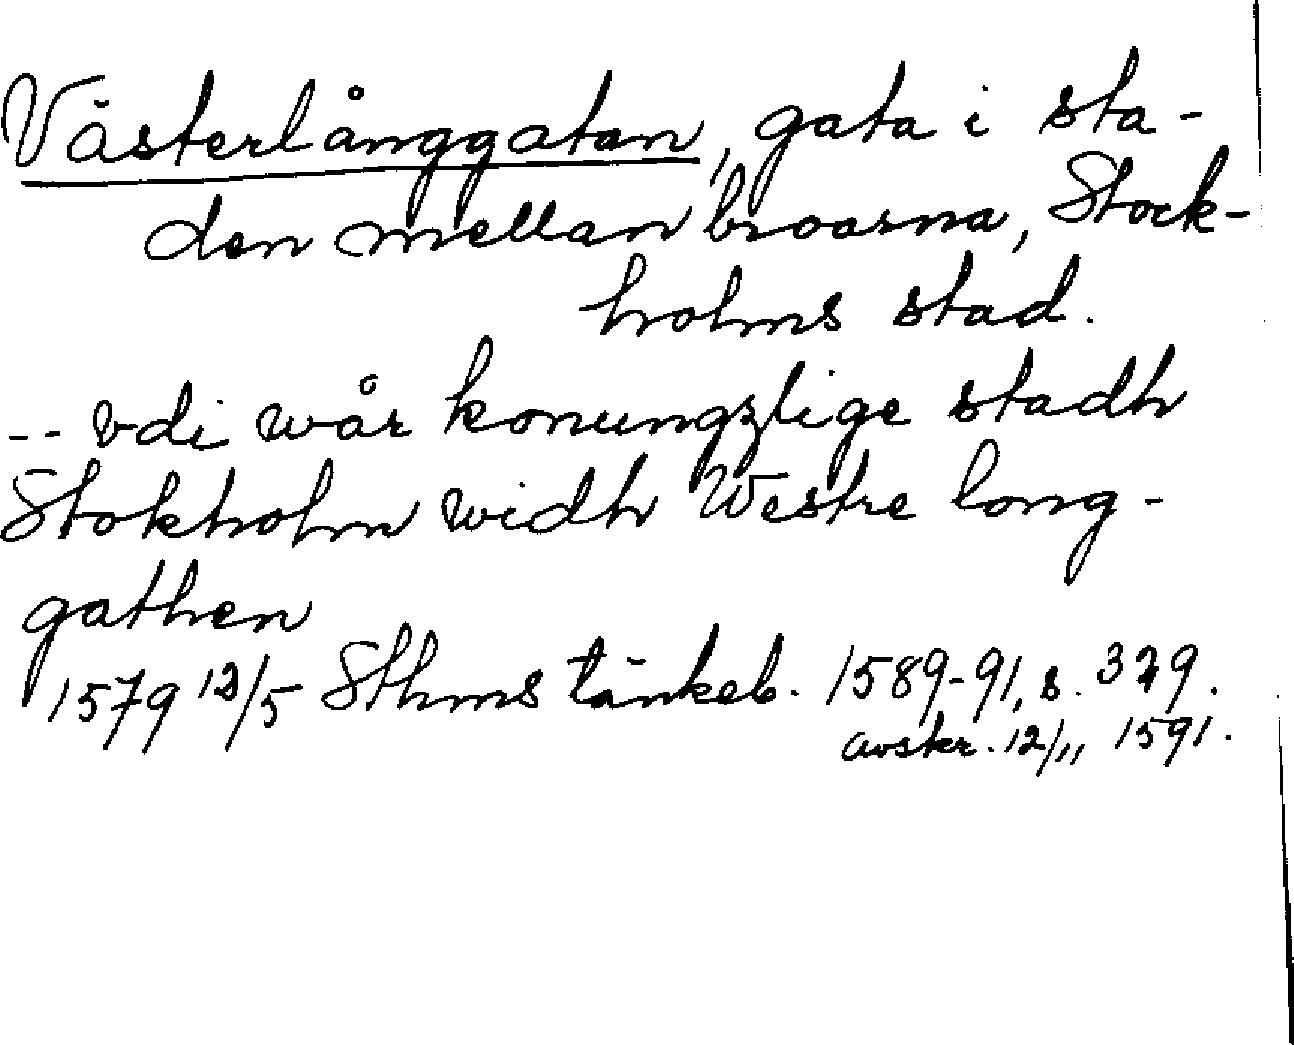 Västerlånggatan, gata i sta-
den mellan broarna, Stock-
holms stad.
-- vdi wår konungzlige stadh
Stokholm widh Westre long-
gathen
1579 12/5 Sthms tänkeb. 1589-91, s. 329.
avskr. 12/11 1591.